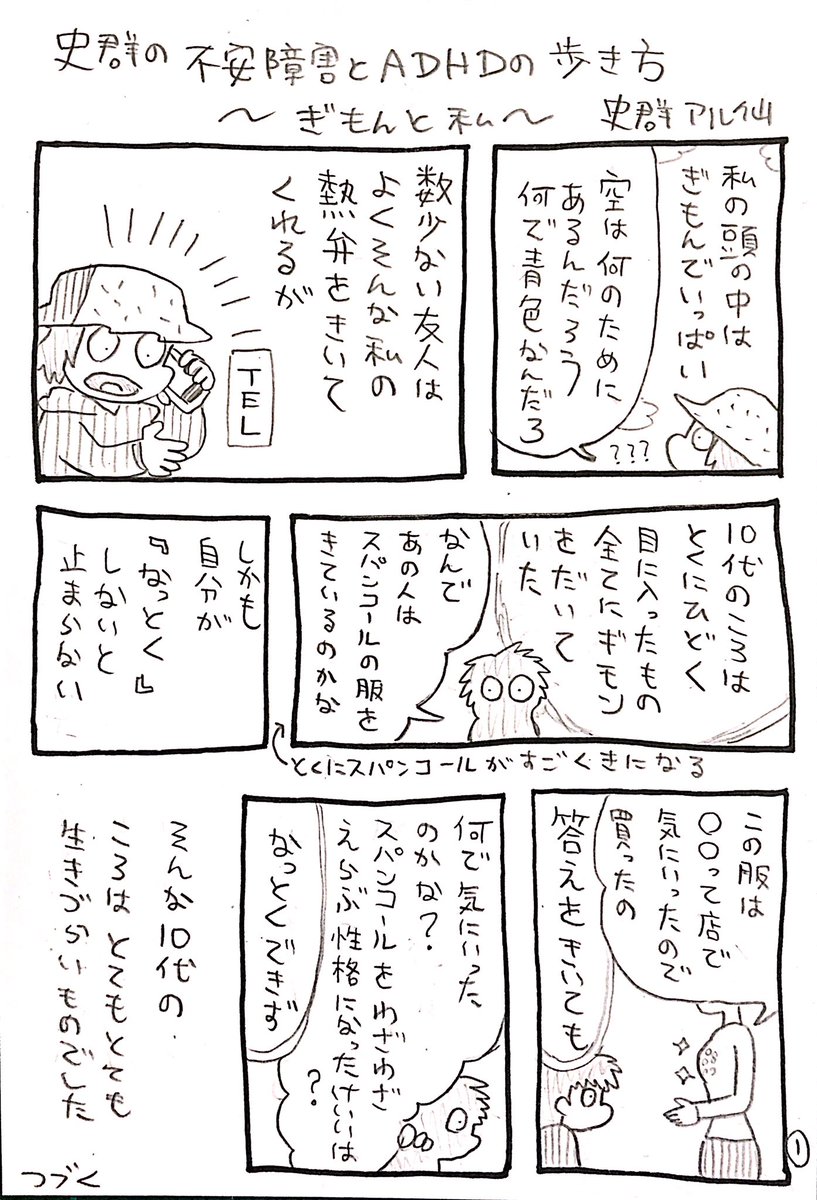 史群の不安障害とADHDの歩き方
〜ぎもんと私〜
史群アル仙
私の頭の中は
ぎもんでいっぱい
空は何のために
あるんだろう
何で青色なんだろ
???
数少ない友人は
よくそんな私の
熱弁をきいて
くれるが
TEL
10代のころは
とくにひどく
目に入ったもの
全てにギモン
をだいて
いた
なんで
あの人は
スパンコールの服を
きているのかな
とくにスパンコールがすごくきになる
しかも
自分が
『なっとく』
しないと
止まらない
この服は
〇〇って店で
気にいったので
買ったの
答えをきいても
何で気にいった
のかな?
スパンコールをわざわざ
えらぶ性格になったけいいは
?
なっとくできず
そんな10代の
ころはとてもとても
生きづらいものでした
1
つづく